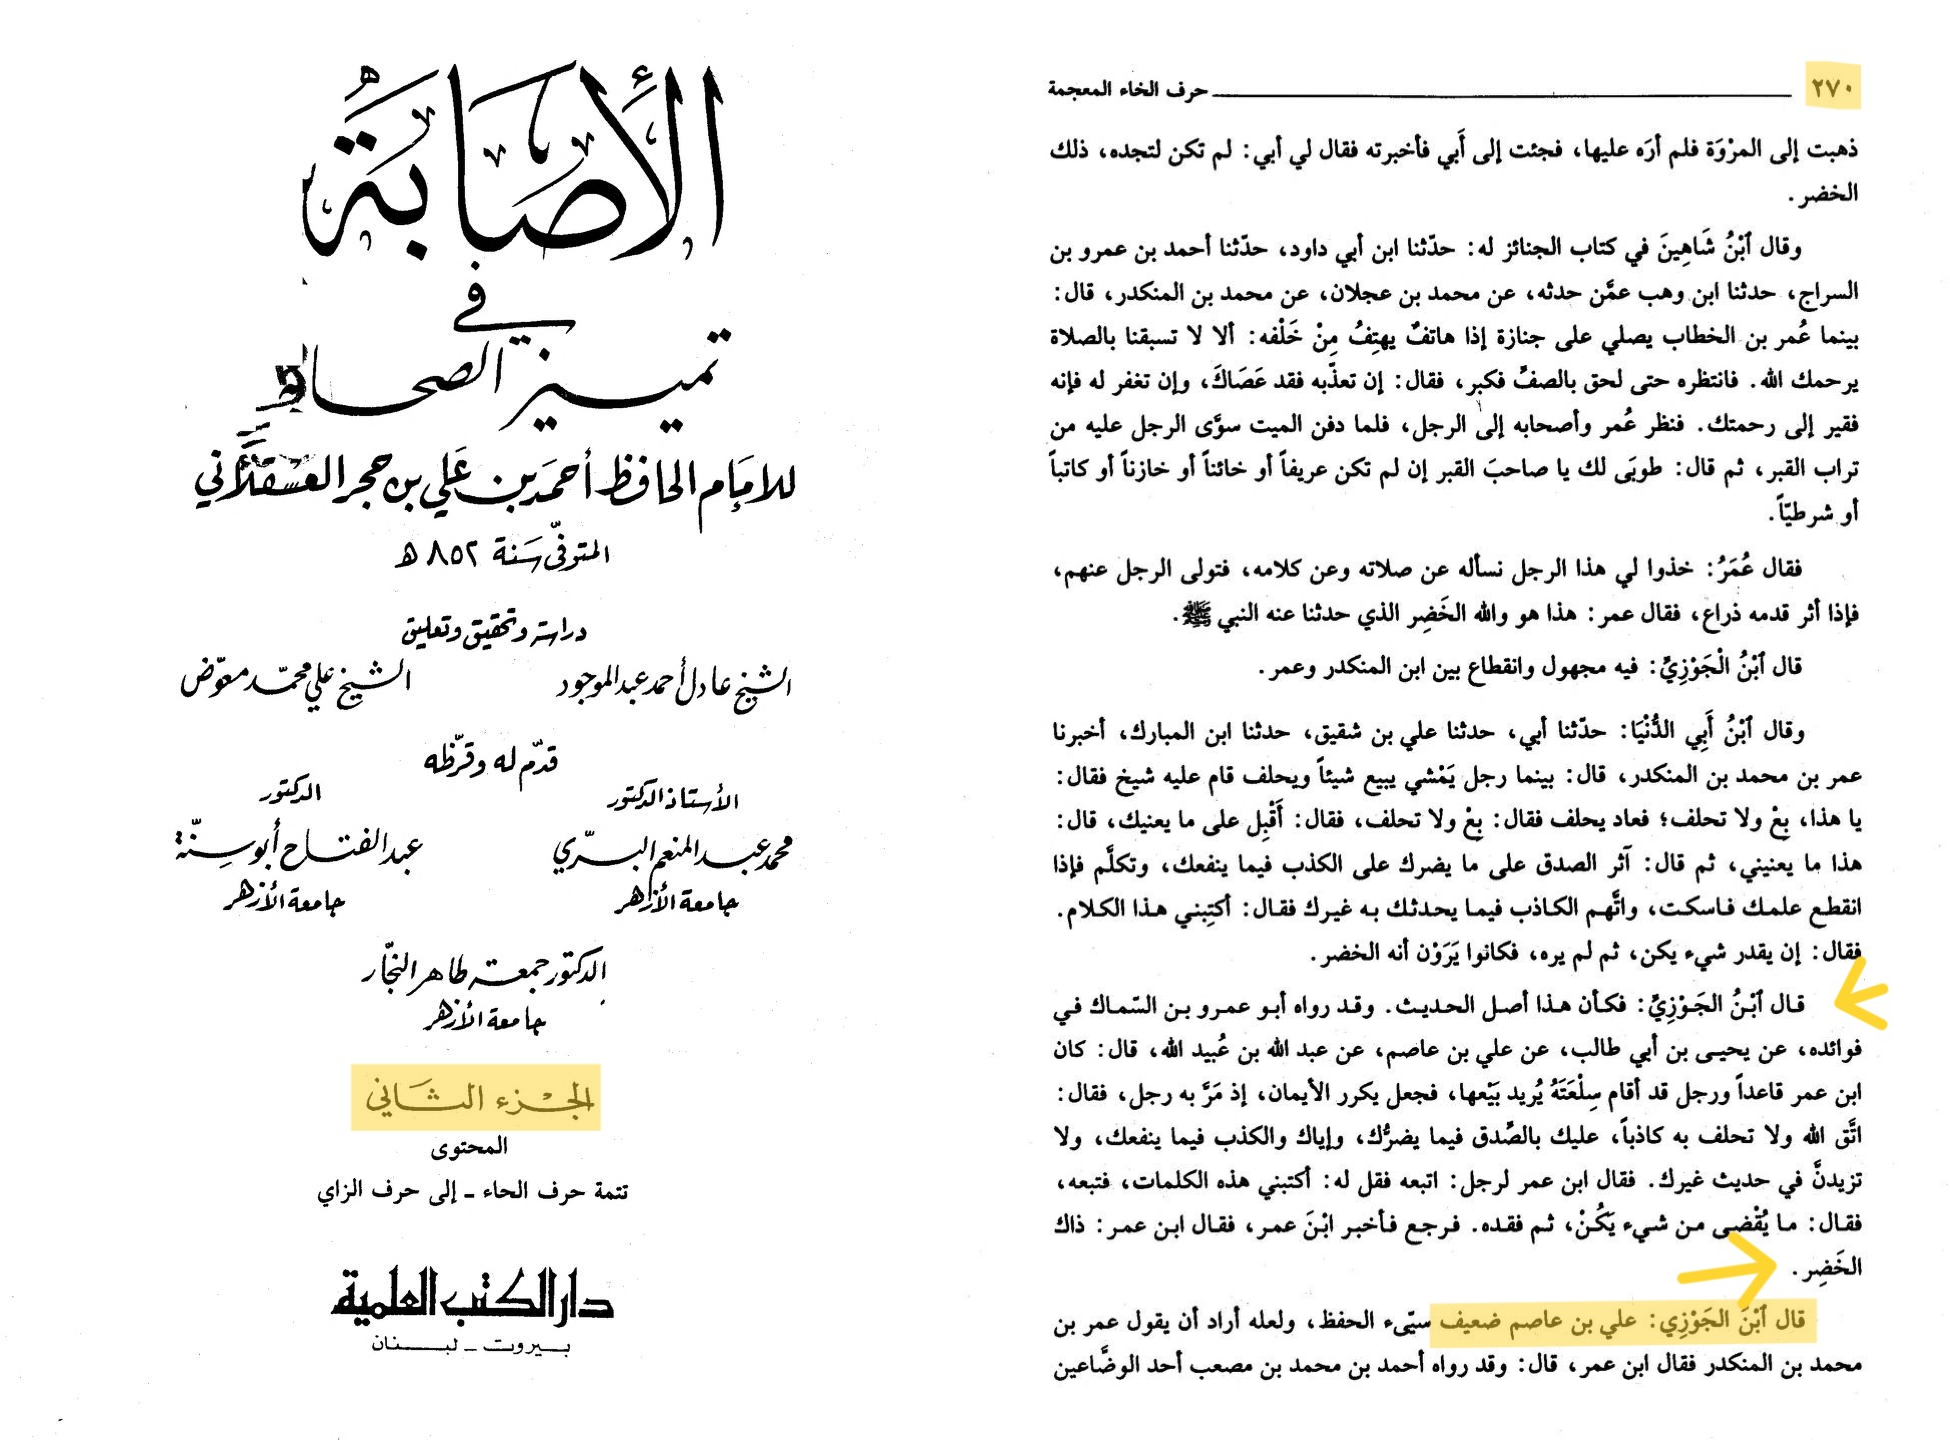 الأصابة
في
تمييز الصحابة
للامام الحافظ أحمد بن علي بن حجر العسقلاني
المتوفى سنة ٨٥٢ ه
دراسة وتحقيق وتعليق
الشيخ عادل أحمد عبد الموجود الشيخ علي محمد معوض
قدّم له وقرّظه
الأستاذ الدكتور الدكتور
محمد عبد المنعم البري عبد الفتاح أبو سنة
جامعة الأزهر جامعة الأزهر
الدكتور جمعة طاهر النجار
جامعة الأزهر
الجزء الثاني
المحتوى
تتمة حرف الحاء ـ إلى حرف الزاي
دار الكتب العلمية
بيروت ـ لبنان
٢٧٠ حرف الخاء المعجمة
ذهبت إلى المرْوَة فلم أرَه عليها، فجئت إلى أَبي فأخبرته فقال لي أبي: لم تكن لتجده، ذلك
الخضر.
وقال ٱبْنُ شَاهِينَ في كتاب الجنائز له: حدّثنا ابن أبي داود، حدّثنا أحمد بن عمرو بن
السراج، حدثنا ابن وهب عمَّن حدثه، عن محمد بن عجلان، عن محمد بن المنكدر، قال:
بينما عُمر بن الخطاب يصلي على جنازة إذا هاتفٌ يهتِفُ مِنْ خَلْفه: ألا لا تسبقنا بالصلاة
يرحمك الله. فانتظره حتى لحق بالصفِّ فكبر، فقال: إن تعذّبه فقد عَصَاكَ، وإن تغفر له فإنه
فقير إلى رحمتك. فنظر عُمر وأصحابه إلى الرجل، فلما دفن الميت سوَّى الرجل عليه من
تراب القبر، ثم قال: طوبَى لك يا صاحبَ القبر إن لم تكن عريفاً أو خائناً أو خازناً أو كاتباً
أو شرطيّاً.
فقال عُمَرُ: خذوا لي هذا الرجل نسأله عن صلاته وعن كلامه، فتولى الرجل عنهم،
فإذا أثر قدمه ذراع، فقال عمر: هذا هو والله الخَضِر الذي حدثنا عنه النبي ﷺ.
قال ٱبْنُ الْجَوْزِيِّ: فيه مجهول وانقطاع بين ابن المنكدر وعمر.
وقال ٱبْنُ أَبِي الدُّنْيَا: حدّثنا أبي، حدثنا علي بن شقيق، حدثنا ابن المبارك، أخبرنا
عمر بن محمد بن المنكدر، قال: بينما رجل يَمْشي يبيع شيئاً ويحلف قام عليه شيخ فقال:
يا هذا، بِعْ ولا تحلف؛ فعاد يحلف فقال: بِعْ ولا تحلف، فقال: أَقْبِل على ما يعنيك، قال:
هذا ما يعنيني، ثم قال: آثر الصدق على ما يضرك على الكذب فيما ينفعك، وتكلَّم فإذا
انقطع علمك فاسكت، واتَّهم الكاذب فيما يحدثك به غيرك فقال: أكتِبني هذا الكلام.
فقال: إن يقدر شيء يكن، ثم لم يره، فكانوا يَرَوْن أنه الخضر.
قال ٱبْنُ الجَوْزِيِّ: فكأن هذا أصل الحديث. وقد رواه أبو عمرو بن السّماك في
فوائده، عن يحيى بن أبي طالب، عن علي بن عاصم، عن عبد الله بن عُبيد الله، قال: كان
ابن عمر قاعداً ورجل قد أقام سِلْعَتَهُ يُريد بَيْعها، فجعل يكرر الأيمان، إذ مَرَّ به رجل، فقال:
اتَّق الله ولا تحلف به كاذباً، عليك بالصِّدق فيما يضرُّك، وإياك والكذب فيما ينفعك، ولا
تزيدنَّ في حديث غيرك. فقال ابن عمر لرجل: اتبعه فقل له: أكتبني هذه الكلمات، فتبعه،
فقال: ما يُقْضى من شيء يَكُنْ، ثم فقده. فرجع فأخبر ابْنَ عمر، فقال ابن عمر: ذاك
الخَضِر.
قال ٱبْنَ الجَوْزِي: علي بن عاصم ضعيف سيّىء الحفظ، ولعله أراد أن يقول عمر بن
محمد بن المنكدر فقال ابن عمر، قال: وقد رواه أحمد بن محمد بن مصعب أحد الوضَّاعين